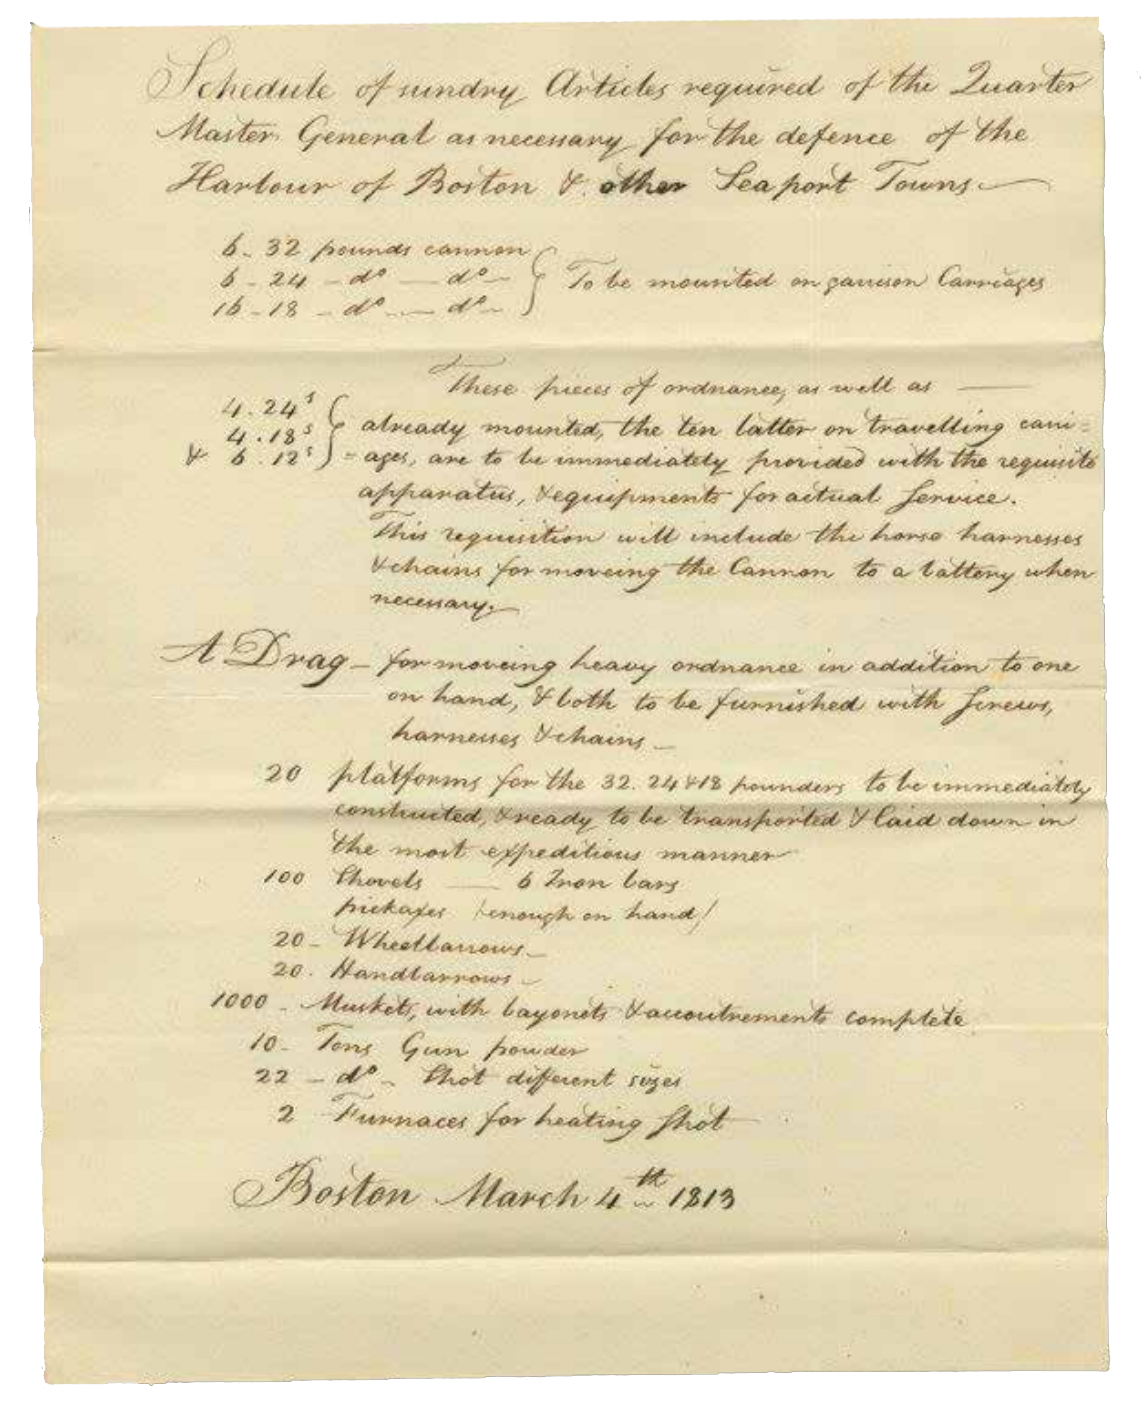 Schedule of sundry Articles required of the Quarter
Master General as necessary for the defence of the
Harbour of Boston & other Seaport Towns
6 - 32 pounds cannon
6 - 24 - do — do -
16 - 18 - do — do -
To be mounted on garrison Carriages
These pieces of ordnance, as well as —
4 . 24s
4 . 18s
& 6 . 12s
already mounted, the ten latter on travelling carri=
=ages, are to be immediately provided with the requisite
apparatus, & equipments for actual Service.
This requisition will include the horse harnesses
& chains for moveing the Cannon to a battery when
necessary.
A Drag - for moveing heavy ordnance in addition to one
on hand, & both to be furnished with Screws,
harnesses & chains -
20 platforms for the 32. 24 & 18 pounders to be immediately
constructed, & ready to be transported & laid down in
the most expeditious manner
100 Shovels — 6 Iron bars
pickaxes (enough on hand)
20 - Wheelbarrows -
20 . Handbarrows -
1000 - Muskets, with bayonets & accoutrements complete
10 - Tons Gun powder
22 - do - Shot different sizes
2 Furnaces for heating Shot
Boston March 4th 1813